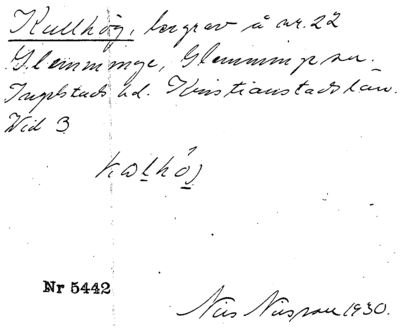 Kullhög, borgrav å nr. 22
Glemminge, Glemminge sn.
Ingelstads hd. Kristianstads län.
Vid 3
kolhög
Nr 5442
Nils Nilsson 1930.